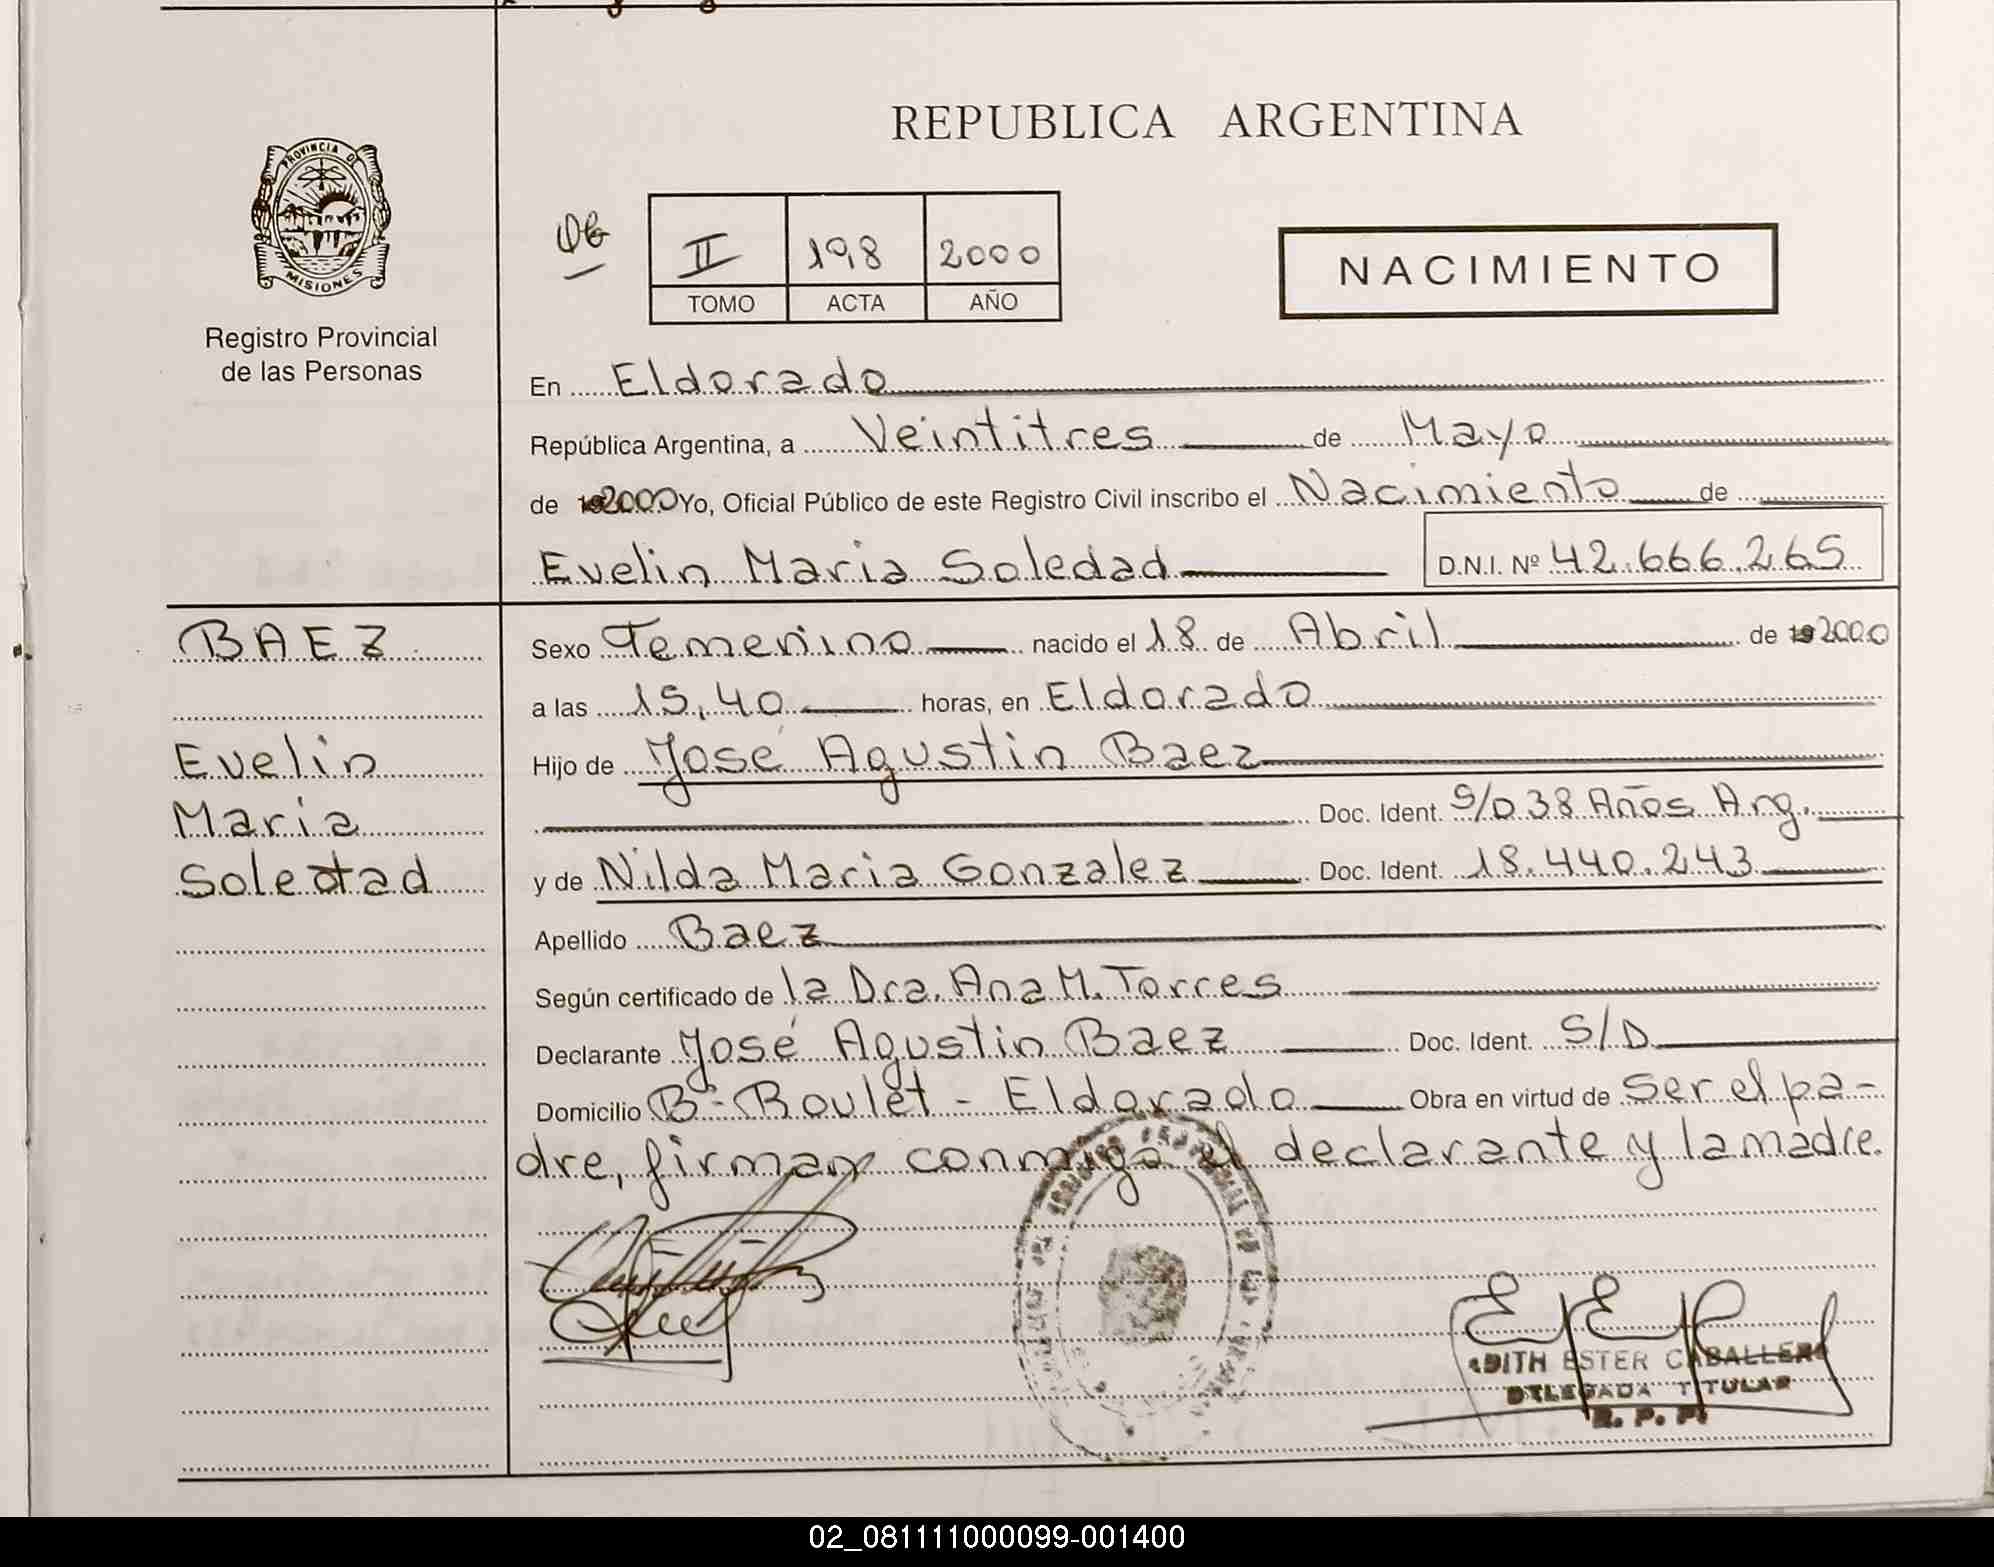 REPUBLICA ARGENTINA
PROVINCIA DE
MISIONES
Registro Provincial
de las Personas
II 198 2000
TOMO ACTA AÑO
NACIMIENTO
En Eldorado
República Argentina, a Veintitres de Mayo
de 2000 Yo, Oficial Público de este Registro Civil inscribo el Nacimiento de
Evelin Maria Soledad D.N.I. Nº 42.666.265
BAEZ
Evelin
Maria
Soledad
Sexo Femenino nacido el 18 de Abril de 2000
a las 15,40 horas, en Eldorado
Hijo de José Agustin Baez
Doc. Ident. S/D 38 Años Arg.
y de Nilda Maria Gonzalez Doc. Ident. 18.440.243
Apellido Baez
Según certificado de la Dra. Ana M. Torres
Declarante José Agustin Baez Doc. Ident. S/D
Domicilio Bº-Boulet - Eldorado Obra en virtud de ser el pa-
dre, firman conmigo el declarante y la madre.
EDITH ESTER CABALLERO
DELEGADA TITULAR
R. P. P.
02_081111000099-001400